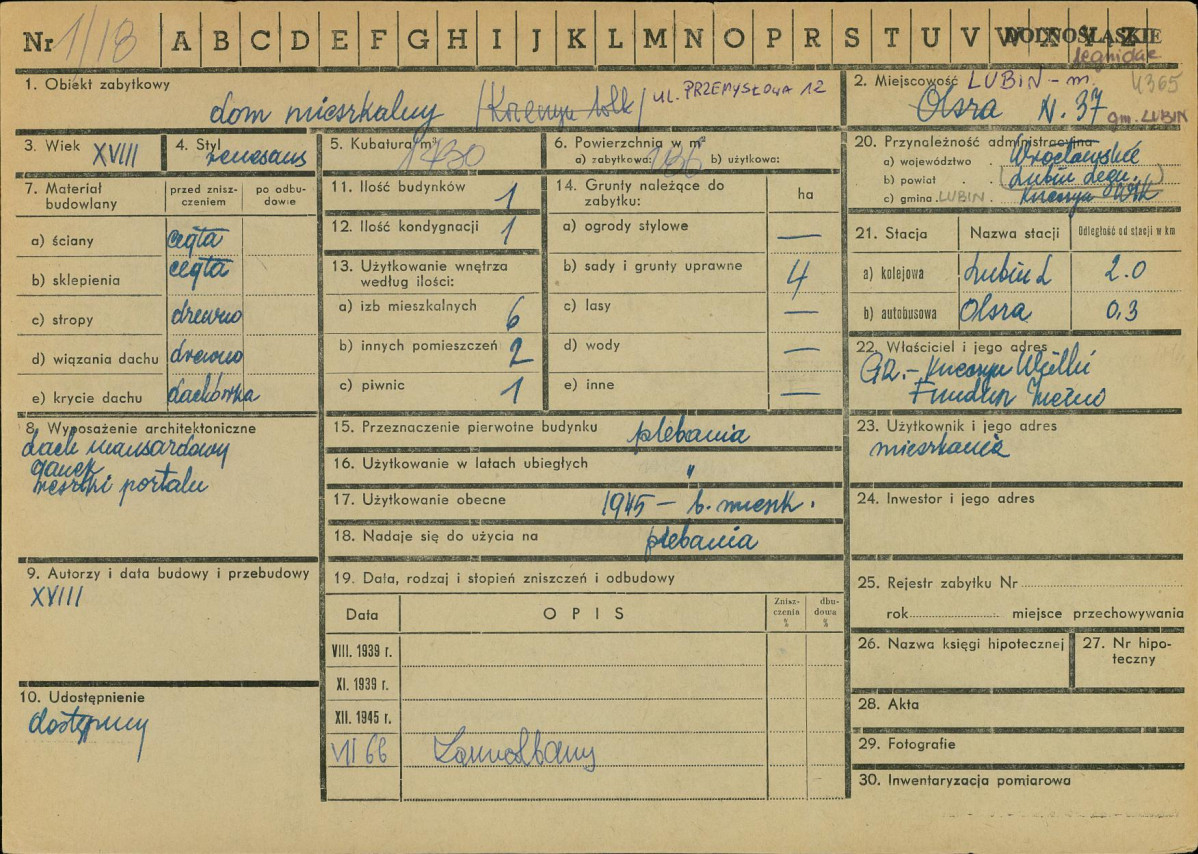 Nr 1/18 A B C D E F G H I J K L M N O P R S T U V W X Y Z DOLNOŚLĄSKIE
legnickie
1. Obiekt zabytkowy
dom mieszkalny
ul. PRZEMYSŁOWA 12
2. Miejscowość LUBIN - m. 4365
Olszra N. 37 gm. LUBIN
3. Wiek XVIII
4. Styl renesans
5. Kubatura m³
6. Powierzchnia w m²
a) zabytkowa: b) użytkowa:
20. Przynależność administracyjna
a) województwo Wrocławskie
b) powiat Lubin Legn.
c) gmina LUBIN
7. Materiał budowlany
przed zniszczeniem
po odbudowie
a) ściany cegła
b) sklepienia cegła
c) stropy drewno
d) wiązania dachu drewno
e) krycie dachu dachówka
11. Ilość budynków 1
12. Ilość kondygnacji 1
13. Użytkowanie wnętrza
według ilości:
a) izb mieszkalnych 6
b) innych pomieszczeń 2
c) piwnic 1
14. Grunty należące do
zabytku: ha
a) ogrody stylowe —
b) sady i grunty uprawne 4
c) lasy —
d) wody —
e) inne —
21. Stacja Nazwa stacji Odległość od stacji w km
a) kolejowa Lubin L 2.0
b) autobusowa Olszra 0,3
22. Właściciel i jego adres
8. Wyposażenie architektoniczne
dach mansardowy
ganek
resztki portalu
15. Przeznaczenie pierwotne budynku plebania
16. Użytkowanie w latach ubiegłych "
17. Użytkowanie obecne 1945 - b. mieszk.
18. Nadaje się do użycia na plebania
23. Użytkownik i jego adres
mieszkania
24. Inwestor i jego adres
9. Autorzy i data budowy i przebudowy
XVIII
10. Udostępnienie
dostępny
19. Data, rodzaj i stopień zniszczeń i odbudowy
Data OPIS Zniszczenia % dbudowa %
VIII. 1939 r.
XI. 1939 r.
XII. 1945 r.
VII 66
25. Rejestr zabytku Nr
rok miejsce przechowywania
26. Nazwa księgi hipotecznej
27. Nr hipoteczny
28. Akta
29. Fotografie
30. Inwentaryzacja pomiarowa